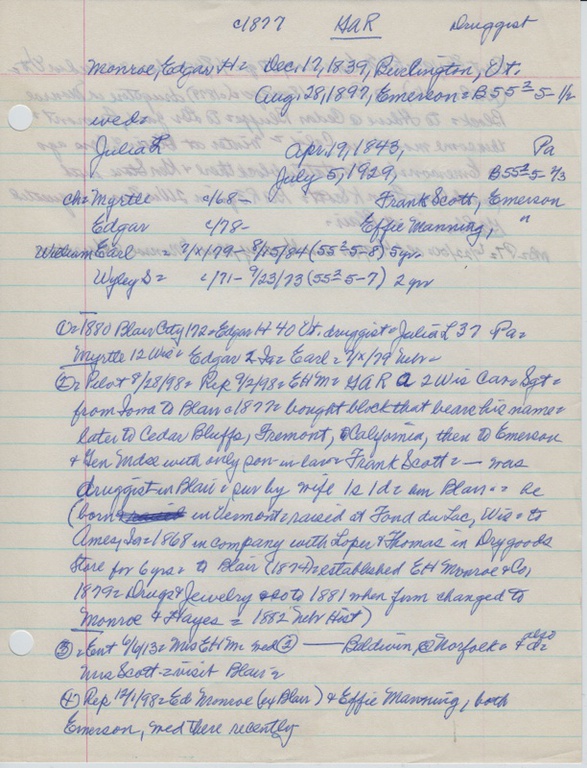 c1877 GAR Druggist
Monroe, Edgar H = Dec. 17, 1839, Burlington, Vt.
Aug. 28, 1897, Emerson = B 55² 5-1/2
wed =
Julia L Apr. 19, 1843, Pa
July 5, 1929, B 55² 5-7/3
ch = Myrtle c/68- Frank Scott, Emerson
Edgar c/78- Effie Manning, "
William Earl = 7/x/79 - 8/15/84 (55² 5-8) 5yr.
Wyley S = c/71 - 9/23/73 (55² 5-7) 2 yr
① = 1880 Blair City 172 = Edgar H 40 Vt. druggist = Julia L 37 Pa =
Myrtle 12 Wis = Edgar 2 Ia = Earl = 7/x/79 Nebr =
② = Pilot 8/28/98 = Rep 9/2/98 = EHM = GAR a 2 Wis Cav = Sgt =
from Iowa to Blair c1877 = bought block that bears his name =
later to Cedar Bluffs, Fremont, & California, then to Emerson
& Gen Mdse with only son-in-law = Frank Scott = — was
druggist in Blair = sur by wife 1s 1d = am Blair = = Re
(born in Vermont = raised at Fond du Lac, Wis = to
Ames, Ia = 1868 in company with Loper & Thomas in Drygoods
Store for 6 yrs = to Blair (1874) = established EH Monroe & Co,
1879 = Drugs & Jewelry = to 1881 when firm changed to
Monroe & Hayes = 1882 Nebr Hist)
③ = Ent 6/6/13 = Mrs EHM wed ② — Baldwin @ Norfolk = & also d =
Mrs Scott = visit Blair =
④ Rep 12/1/98 = Ed Monroe (ex Blair) & Effie Manning, both
Emerson, wed there recently